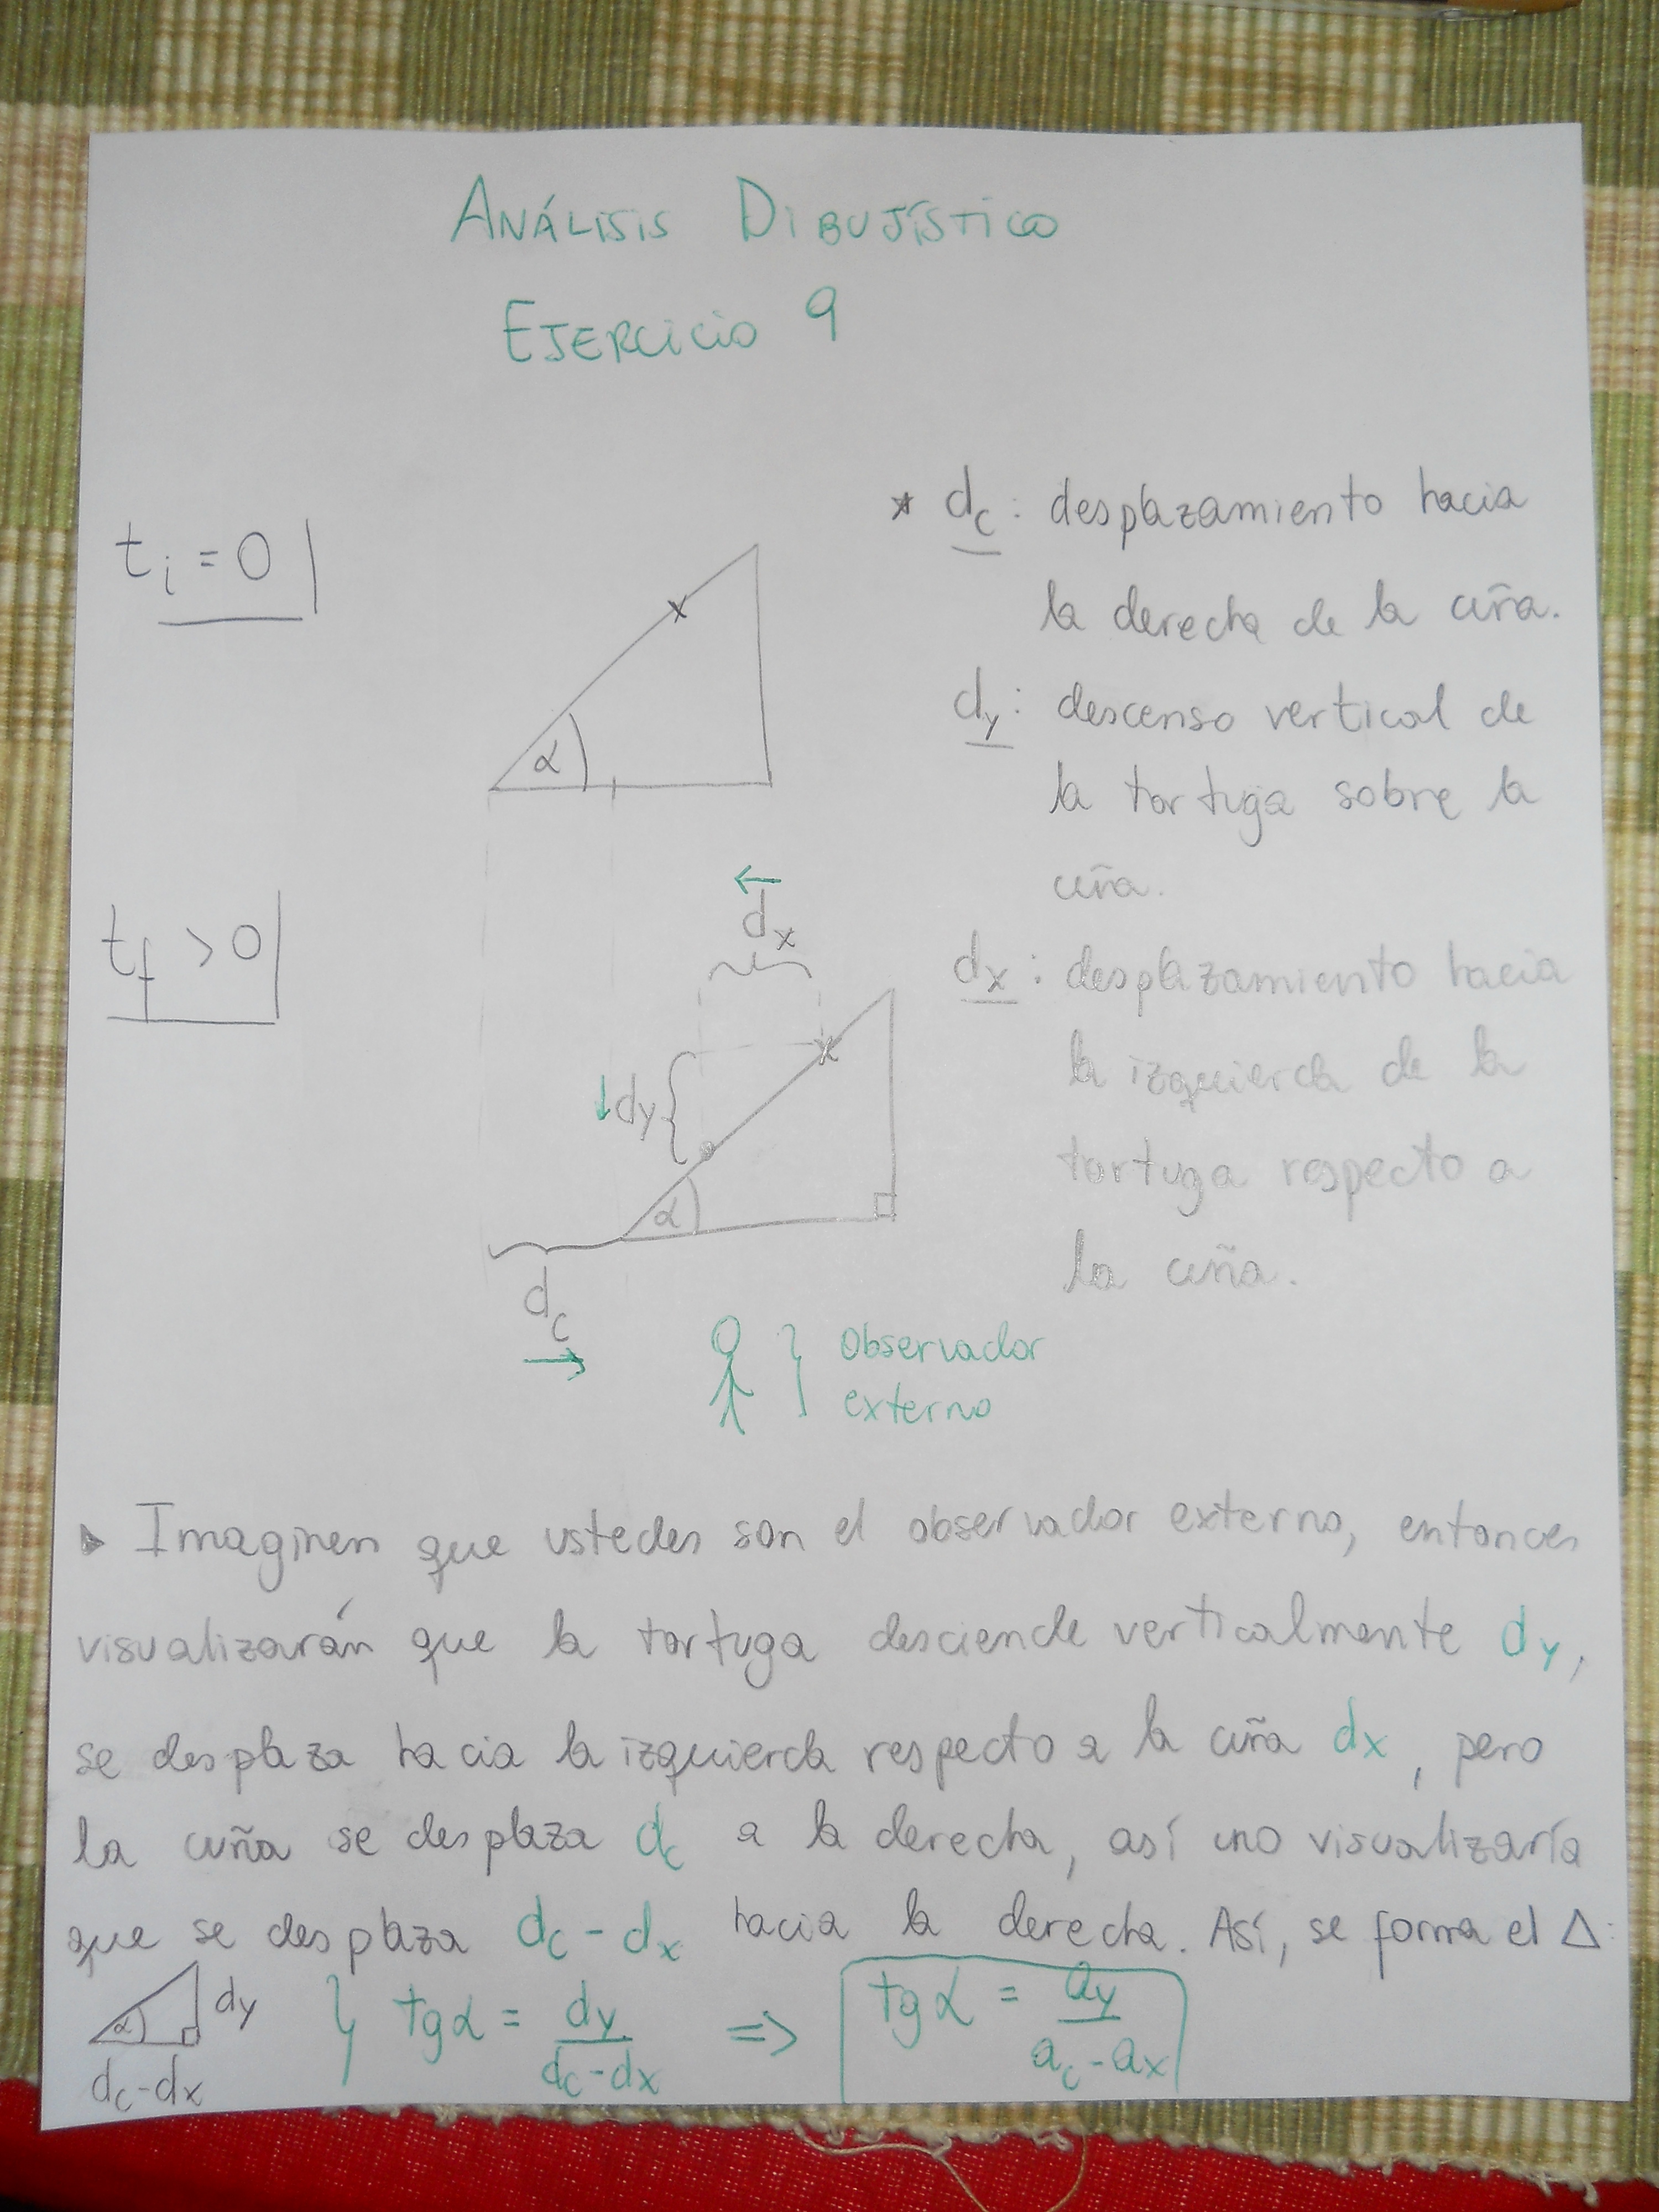 ANÁLISIS DIBUJÍSTICO
EJERCICIO 9
t_i = 0
α
* d_c : desplazamiento hacia
la derecha de la cuña.
d_y : descenso vertical de
la tortuga sobre la
cuña.
d_x : desplazamiento hacia
la izquierda de la
tortuga respecto a
la cuña.
t_f > 0
←
d_x
↓ d_y
α
d_c
→
Observador
externo
▸ Imaginen que ustedes son el observador externo, entonces
visualizarán que la tortuga desciende verticalmente d_y,
se desplaza hacia la izquierda respecto a la cuña d_x, pero
la cuña se desplaza d_c a la derecha, así uno visualizaría
que se desplaza d_c - d_x hacia la derecha. Así, se forma el Δ:
α d_y
d_c - d_x
tg α = d_y / (d_c - d_x) => tg α = a_y / (a_c - a_x)